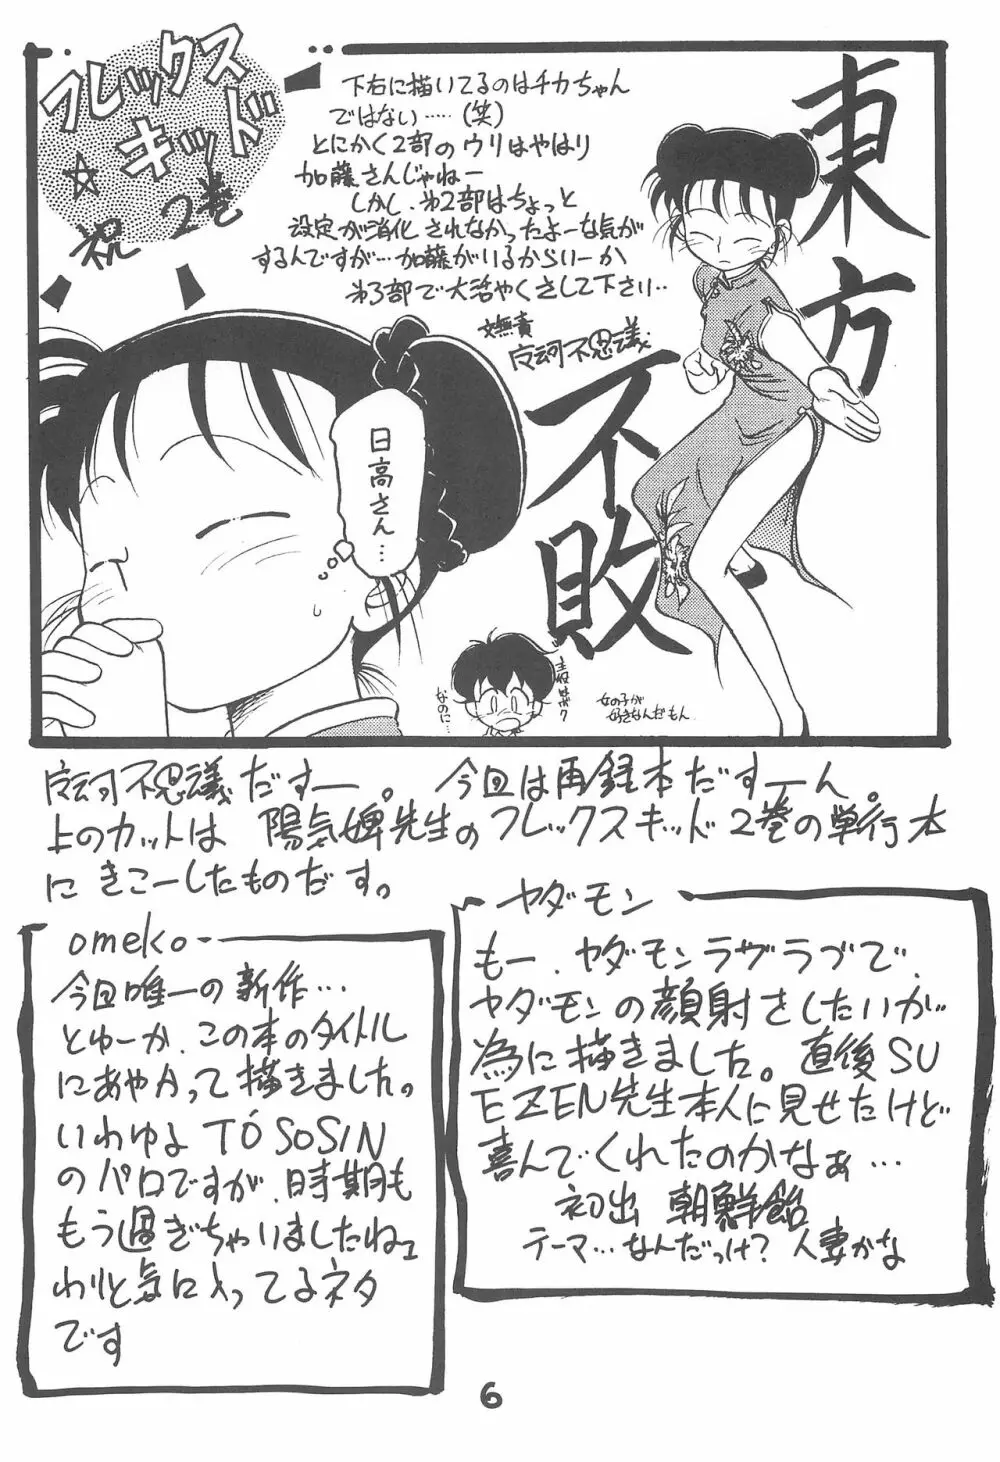 フレックス
☆キッド
祝 2巻
下右に描いてるのはチカちゃん
ではない‥‥(笑)
とにかく2部のウリはやはり
加藤さんじゃねー
しかし、第2部はちょっと
設定が消化されなかったよーな気が
するんですが…加藤がいるからいーか
第3部で大活やくさして下さい‥
文無責
不思議
東方不敗
日高さん…
主役はボク
なのに…
女の子が
好きなんだもん
不思議だすー。今回は再録本だすーん。
上のカットは 陽気婢先生のフレックスキッド2巻の単行本
にきこーしたものだす。
omeko
今回唯一の新作…
とゆーか、この本のタイトル
にあやかって描きました。
いわゆる TÓSOSIN
のパロですが、時期も
もう過ぎちゃいましたね
わりと気に入ってるネタ
です
ヤダモン
もー、ヤダモンラヴラヴで、
ヤダモンの顔射さしたいが
為に描きました。直後SU
EZEN先生本人に見せたけど
喜んでくれたのかなぁ…
初出 朝鮮飴
テーマ…なんだっけ? 人妻かな
6